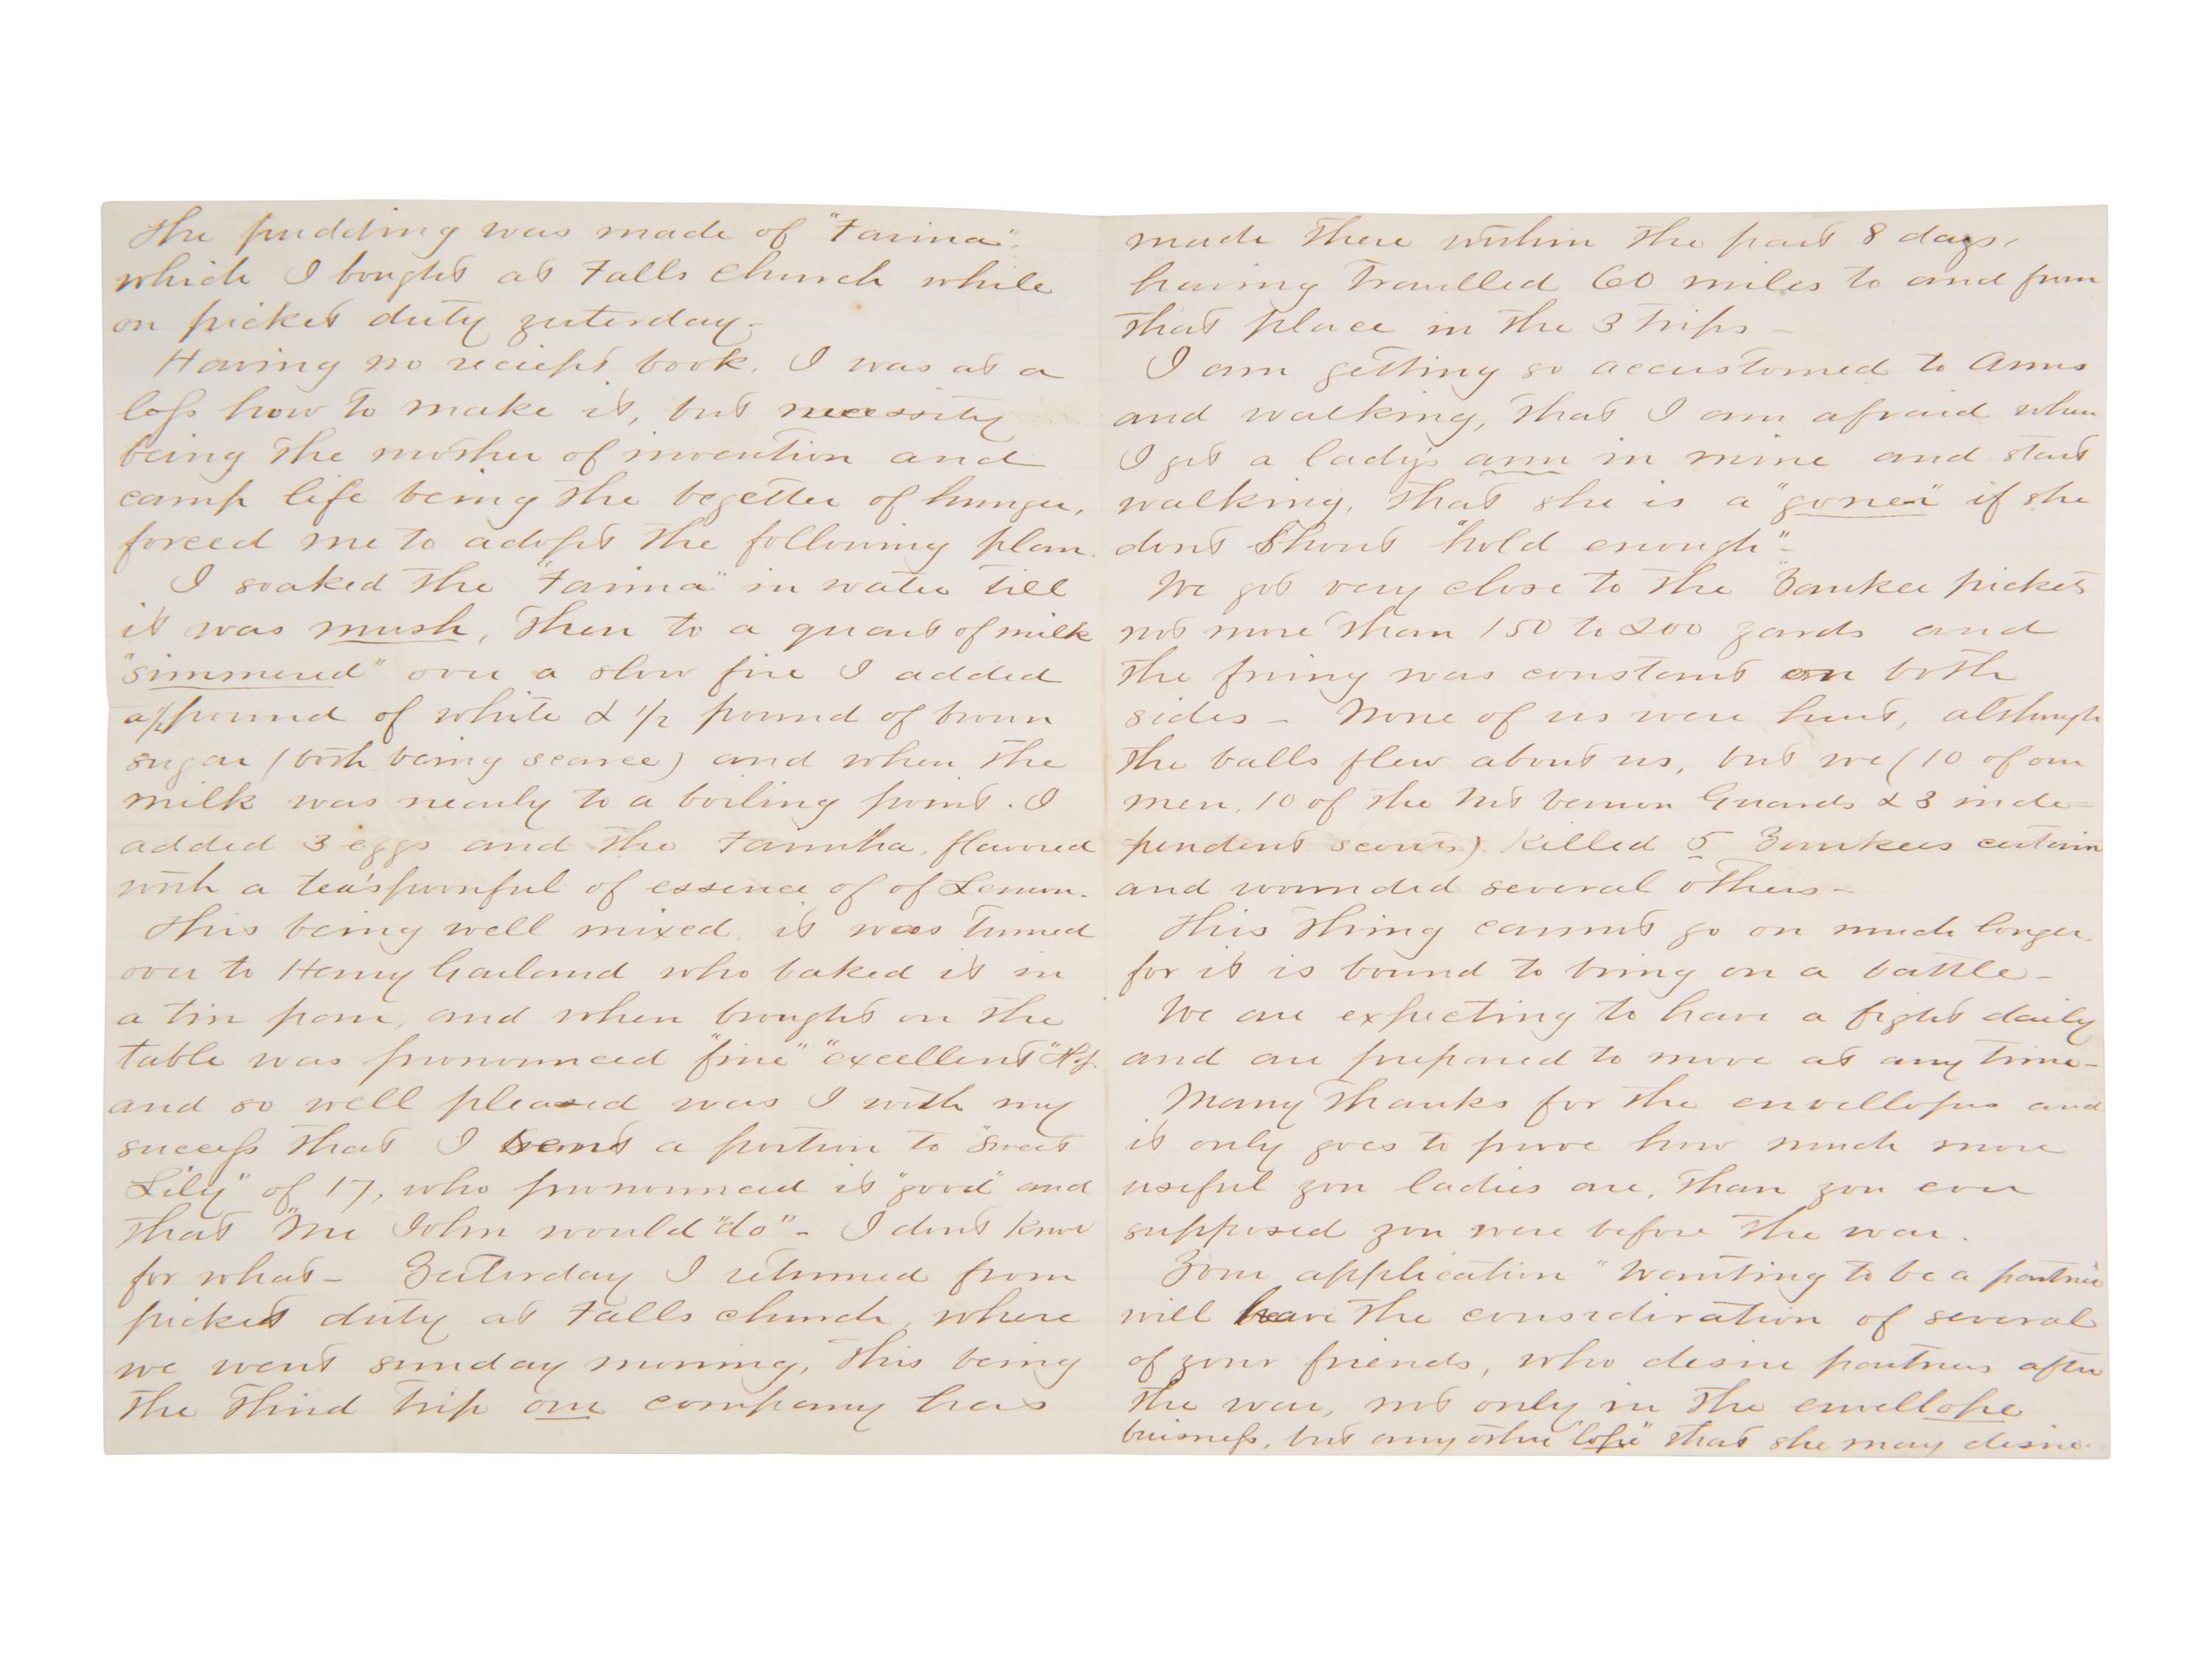 The pudding was made of "Farina".
which I bought at Falls Church while
on picket duty yesterday.
Having no reciept book. I was at a
loss how to make it, but necessity
being the mother of invention and
camp life being the begetter of hunger,
forced me to adopt the following plan.
I soaked the "Farina" in water till
it was mush, then to a quart of milk
"simmered" over a slow fire I added
a ½ pound of white & ½ pound of brown
sugar (both being scarce) and when the
milk was nearly to a boiling point. I
added 3 eggs and the Farinha, flavored
with a tea'spoonful of essence of of Lemon.
This being well mixed, it was turned
over to Henry Garland who baked it in
a tin pan, and when brought on the
table was pronounced "fine" "excellent"
and so well pleased was I with my
success that I sent a portion to "Sweet
Lily" of 17, who pronounced it "good" and
that "Mr John would "do" - I dont know
for what - Yesterday I returned from
picket duty at Falls church, where
we went sunday morning, this being
the third trip our company has
made there within the past 8 days,
having travelled 60 miles to and from
that place in the 3 trips -
I am getting so accustomed to arms
and walking, that I am afraid when
I get a lady's arm in mine and start
walking, that she is a "goner" if she
dont shout "hold enough" -
We got very close to the Yankee pickets
not more than 150 to 200 yards and
the firing was constant on both
sides - None of us were hurt, although
the balls flew about us, but we (10 of our
men, 10 of the Mt Vernon Guards & 3 inde=
pendent scouts) killed 5 Yankees certain
and wounded several others -
This thing cannot go on much longer,
for it is bound to bring on a battle -
We are expecting to have a fight daily
and are prepared to move at any time -
Many thanks for the envellopes and
it only goes to prove how much more
useful you ladies are, than you ever
supposed you were before the war.
Your application "Wanting to be a partner
will have the consideration of several
of your friends, who desire partners after
the war, not only in the envellope
buisness, but any other "lope" that she may desire.